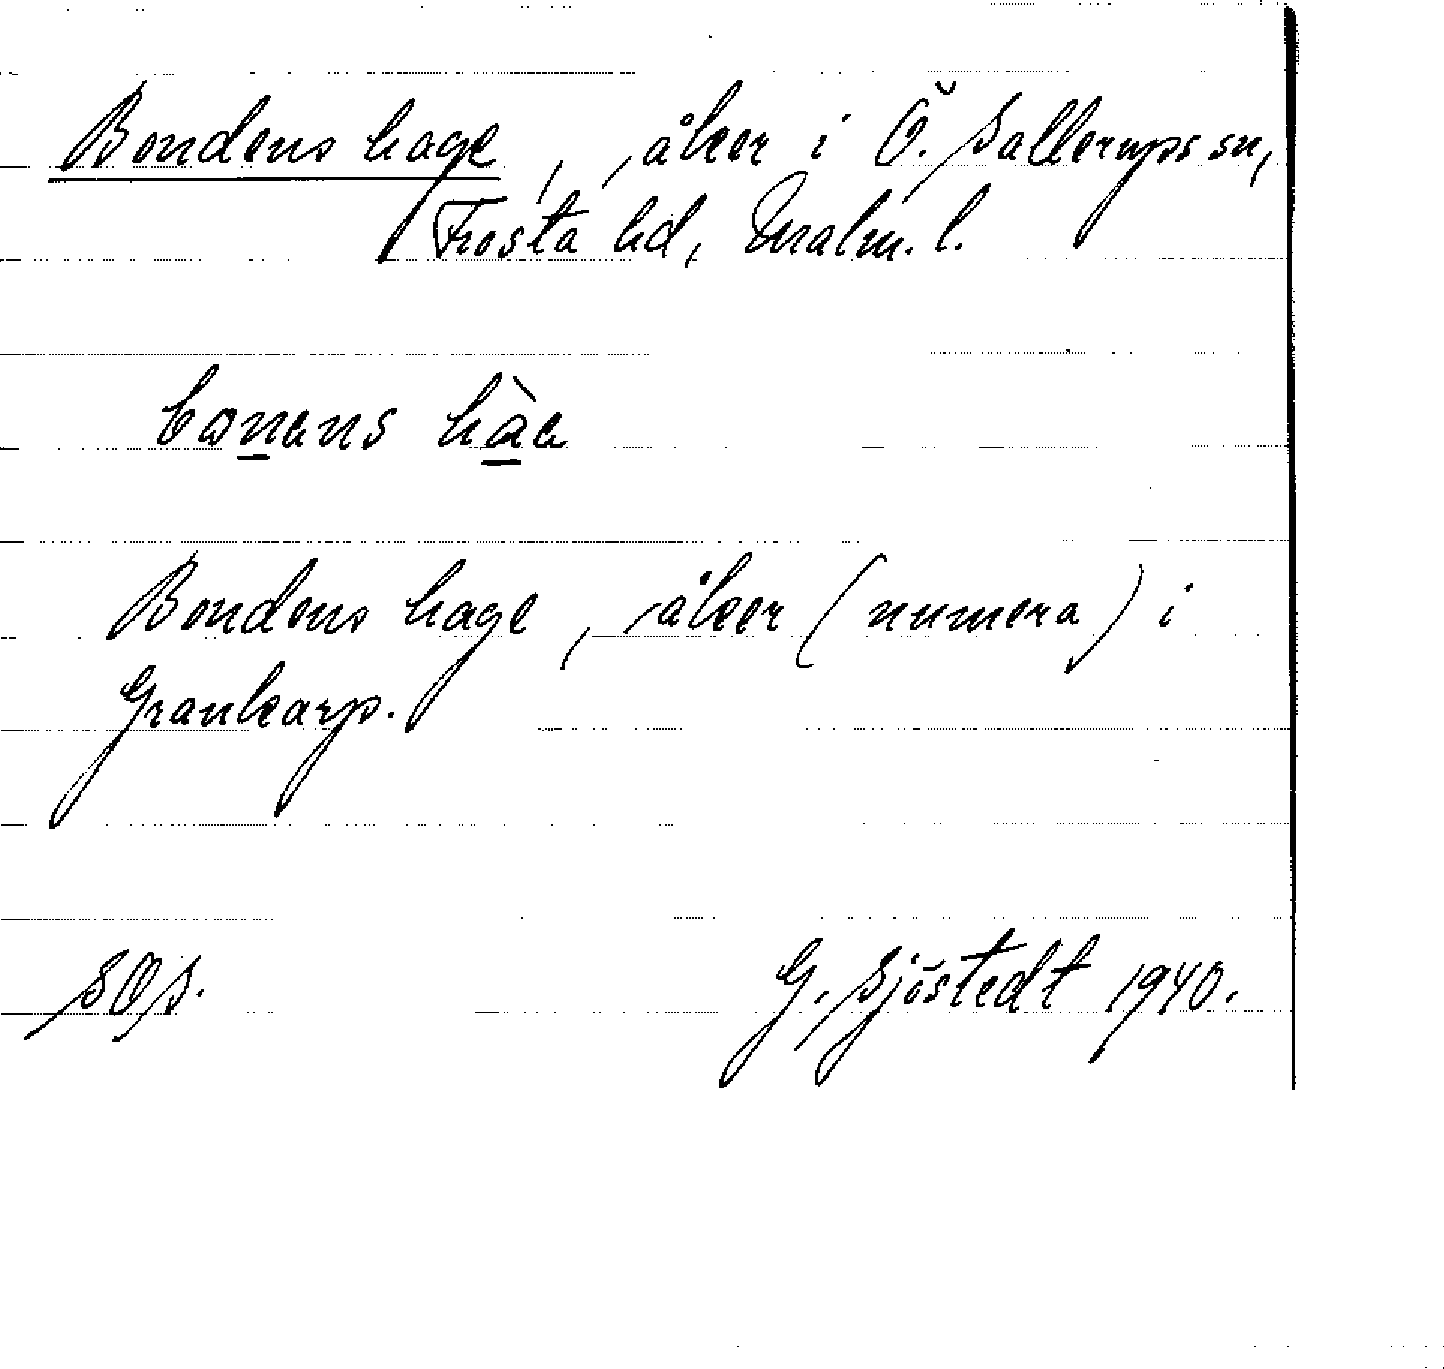 Bondens hage, åker i Ö. Sallerups sn,
Frosta hd, Malm. l.
bonens hàe
Bondens hage, åker (numera) i
Grankarp.
SOS.
G. Sjöstedt 1940.